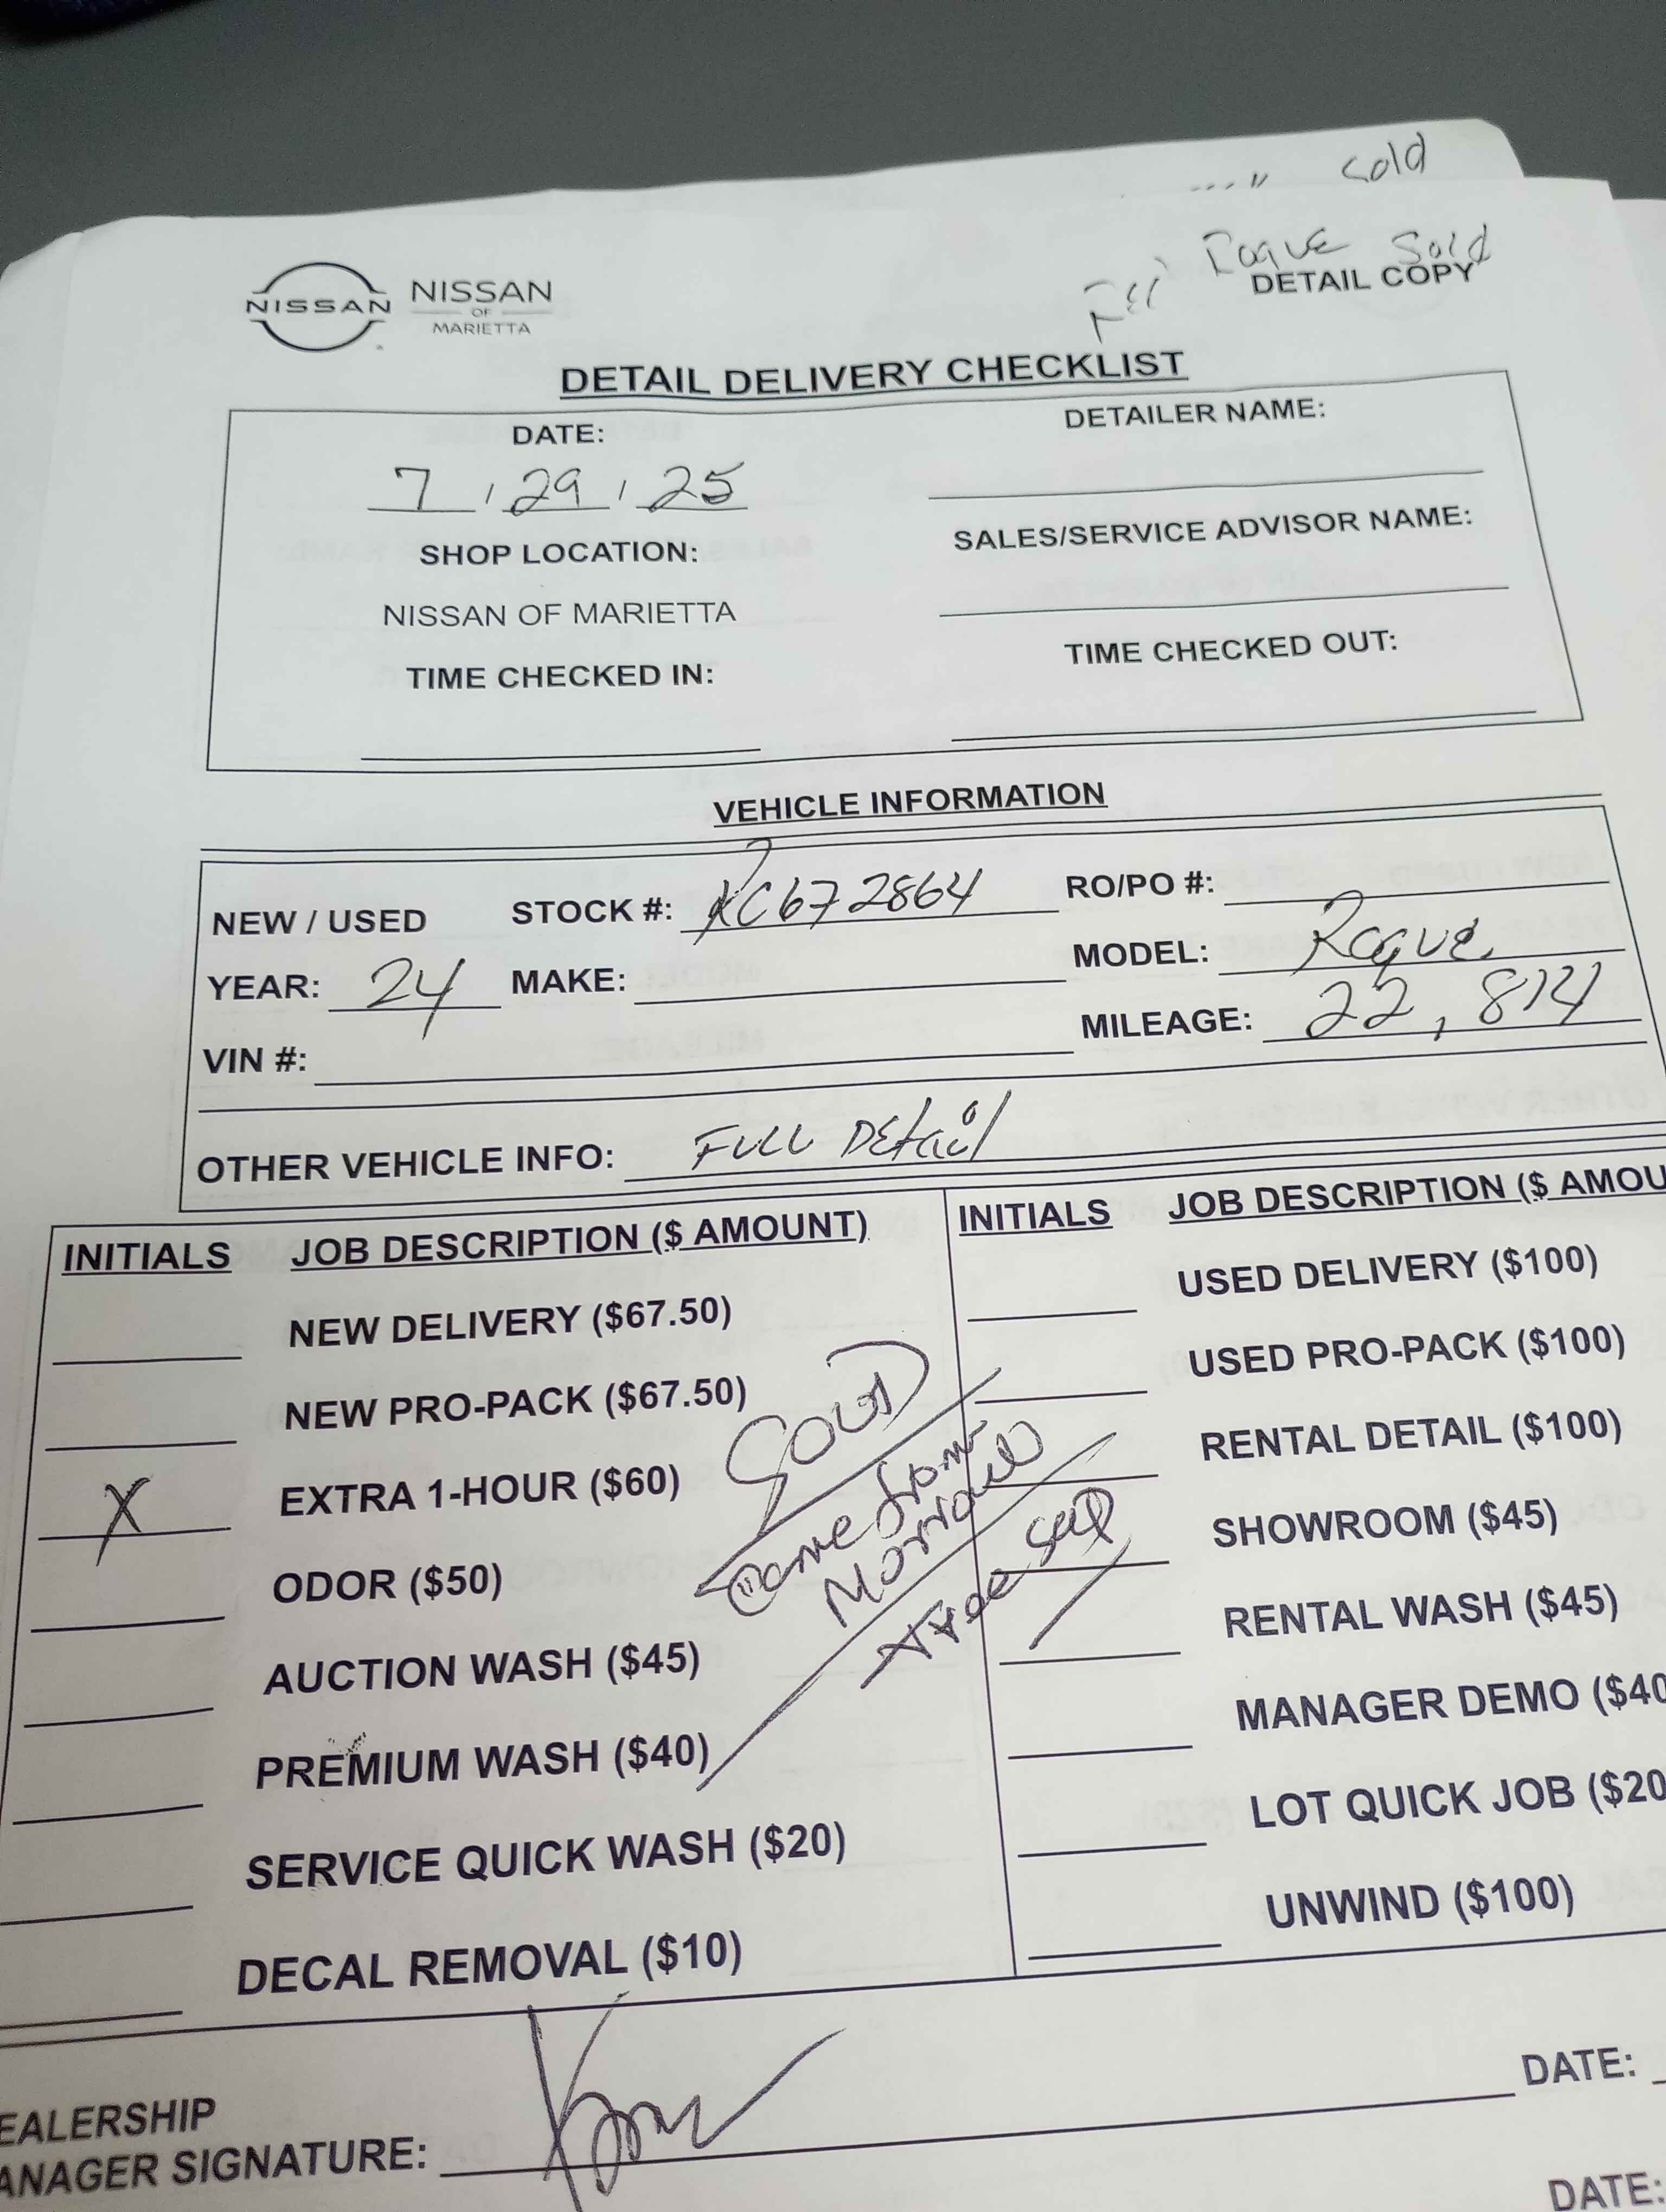 sold
Rogue Sold
DETAIL COPY
NISSAN
NISSAN
OF
MARIETTA
DETAIL DELIVERY CHECKLIST
DATE:
7 / 29 / 25
DETAILER NAME:
SHOP LOCATION:
SALES/SERVICE ADVISOR NAME:
NISSAN OF MARIETTA
TIME CHECKED IN:
TIME CHECKED OUT:
VEHICLE INFORMATION
NEW / USED STOCK #: RC672864 RO/PO #:
YEAR: 24 MAKE: MODEL: Rogue
VIN #: MILEAGE: 22,814
OTHER VEHICLE INFO: FULL Detail
INITIALS JOB DESCRIPTION ($ AMOUNT)
NEW DELIVERY ($67.50)
NEW PRO-PACK ($67.50)
X EXTRA 1-HOUR ($60)
ODOR ($50)
AUCTION WASH ($45)
PREMIUM WASH ($40)
SERVICE QUICK WASH ($20)
DECAL REMOVAL ($10)
Came from
INITIALS JOB DESCRIPTION ($ AMOU
USED DELIVERY ($100)
USED PRO-PACK ($100)
RENTAL DETAIL ($100)
SHOWROOM ($45)
RENTAL WASH ($45)
MANAGER DEMO ($40
LOT QUICK JOB ($20
UNWIND ($100)
EALERSHIP
ANAGER SIGNATURE:
DATE:
DATE: